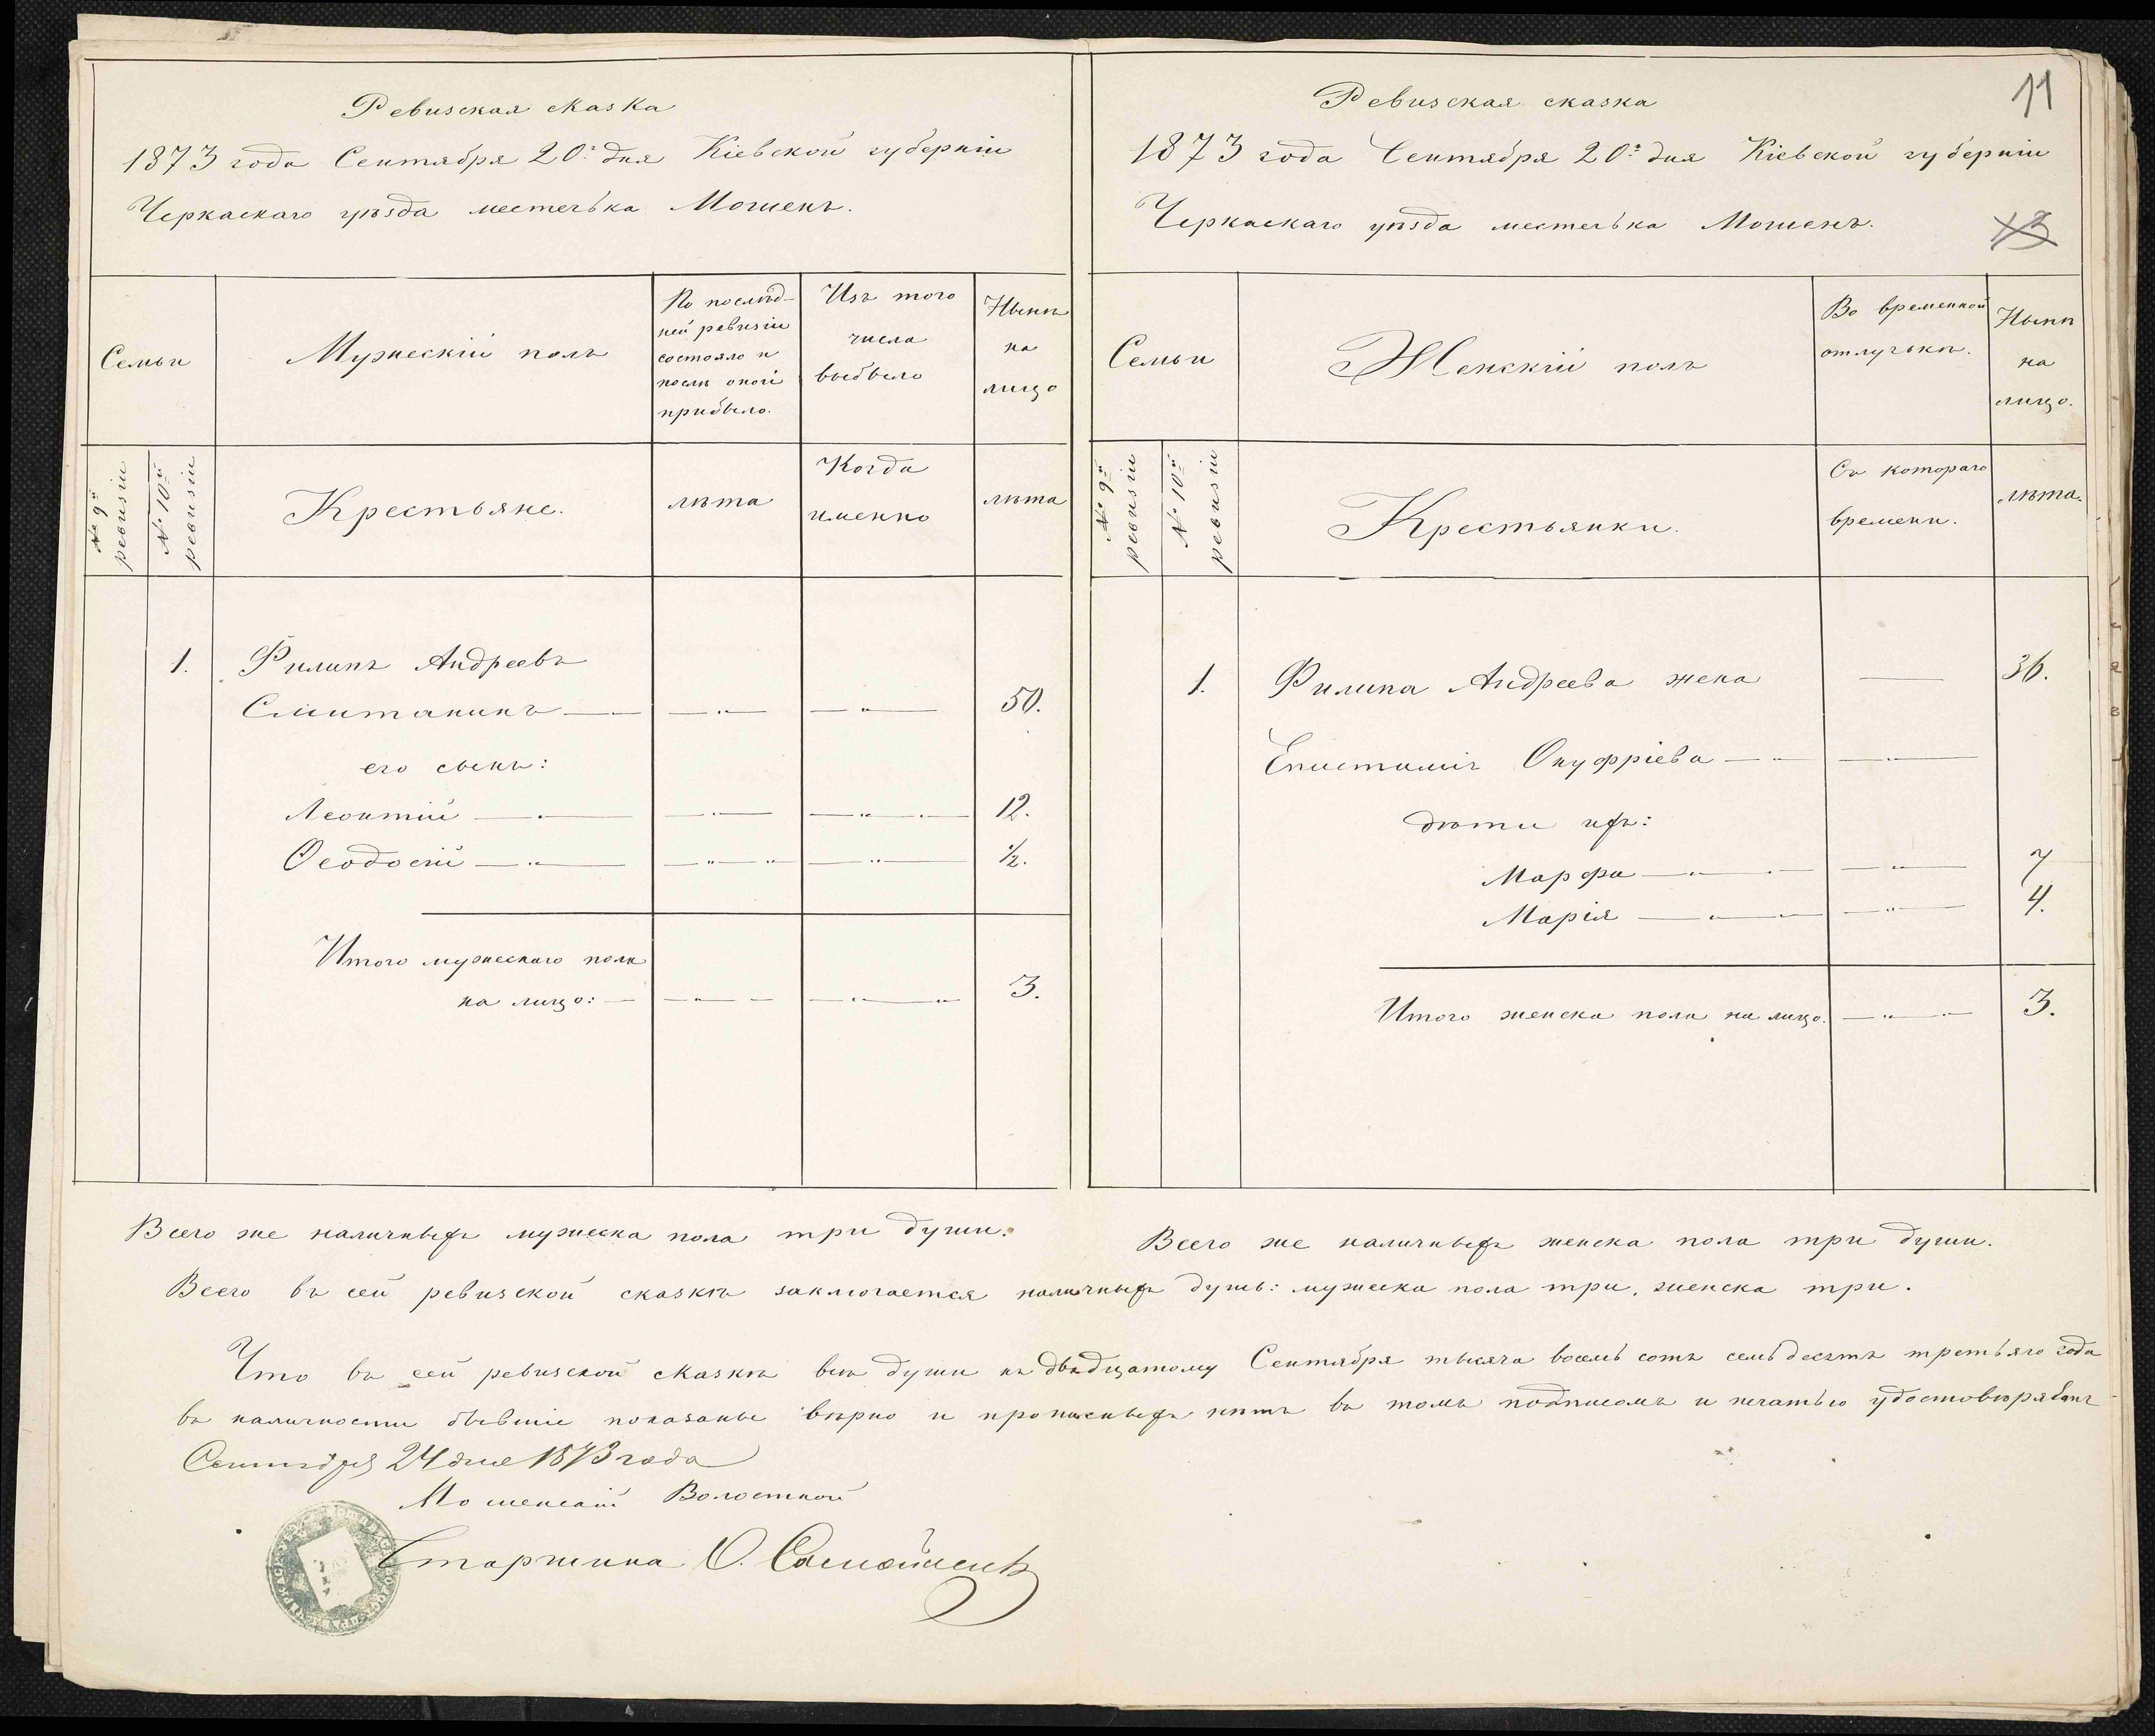 Ревизская сказка
1873 года Сентября 20го дня Кіевской губерніи
Черкаскаго уѣзда местечька Мошенъ.
Семьи
Мужескій полъ
По послѣд-
ней ревизіи
состояло и
послѣ оной
прибыло.
Изъ того
числа
выбыло
Нынѣ
на
лицо
№ 9й
ревизіи
№ 10й
ревизіи
Крестьяне.
лѣта
Когда
именно
лѣта
1. Филипъ Андреевъ
50.
его сынъ:
Леонтій 12.
Ѳеодосій ½.
Итого мужескаго пола
на лицо: 3.
Всего же наличныхъ мужеска пола три души.
11
Ревизская сказка
1873 года Сентября 20го дня Кіевской губерніи
Черкаскаго уѣзда местечька Мошенъ.
Семьи
Женскій полъ
Во временной
отлучькѣ.
Нынѣ
на
лицо.
№ 9й
ревизіи
№ 10й
ревизіи
Крестьянки.
Съ котораго
времени.
лѣта.
1. Филипа Андреева жена 36.
Епистимія Онуфріева
дѣти ихъ:
Марфа 7
Марія 4.
Итого женска пола на лицо. 3.
Всего же наличныхъ женска пола три души.
Всего въ сей ревизской сказкѣ заключается наличныхъ душъ: мужеска пола три, женска три.
Что въ сей ревизской сказкѣ всѣ души къ двадцатому Сентября тысяча восемь сотъ семьдесятъ третьяго года
въ наличности бывшіе показаны вѣрно и прописныхъ нѣтъ въ томъ подписомъ и печатью
Сентября 24 дня 1873 года
Мошенскій Волостной
Старшина